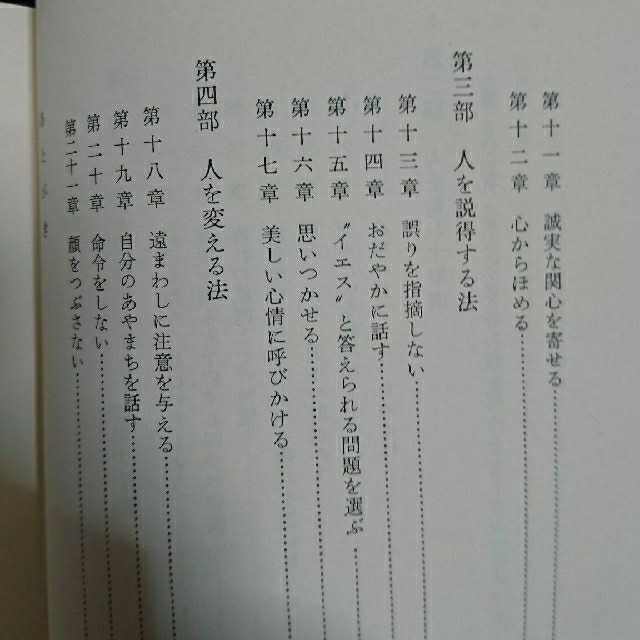 第十一章 誠実な関心を寄せる
第十二章 心からほめる
第三部 人を説得する法
第十三章 誤りを指摘しない
第十四章 おだやかに話す
第十五章 〝イエス〟と答えられる問題を選ぶ
第十六章 思いつかせる
第十七章 美しい心情に呼びかける
第四部 人を変える法
第十八章 遠まわしに注意を与える
第十九章 自分のあやまちを話す
第二十章 命令をしない
第二十一章 顔をつぶさない